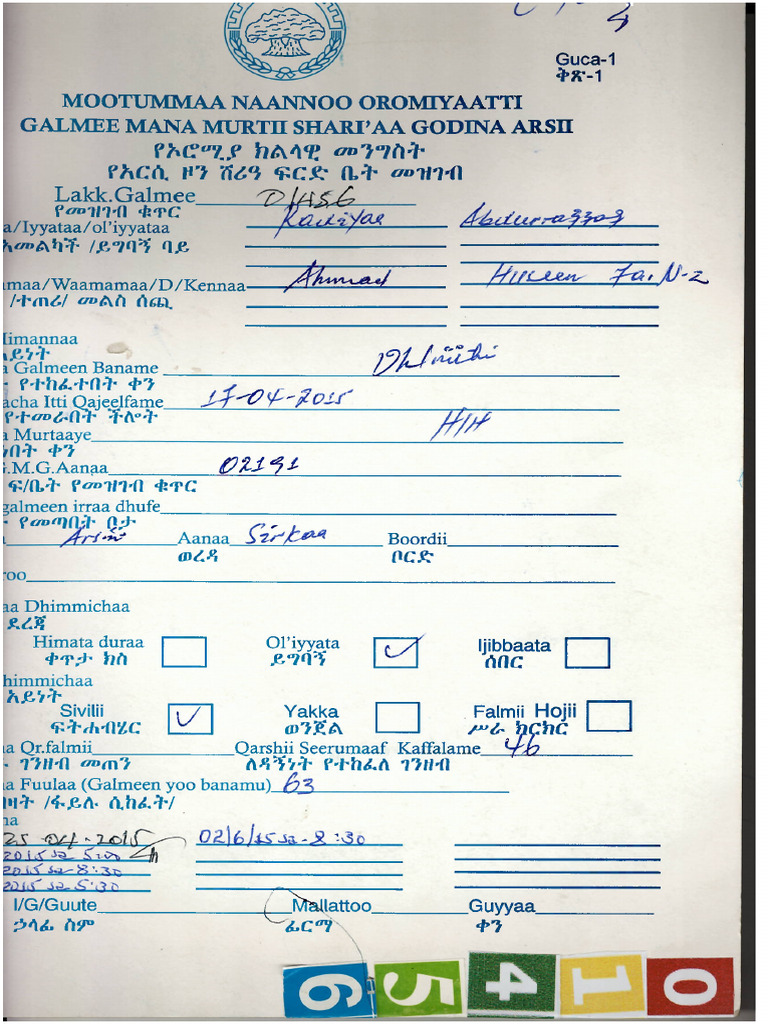 Guca-1
ቅጽ-1
MOOTUMMAA NAANNOO OROMIYAATTI
GALMEE MANA MURTII SHARI'AA GODINA ARSII
የኦሮሚያ ክልላዊ መንግስት
የአርሲ ዞን ሸሪዓ ፍርድ ቤት መዝገብ
Lakk.Galmee
የመዝገብ ቁጥር
a/Iyyataa/ol'iyyataa Kadiyaa
አመልካች /ይግባኝ ባይ
maa/Waamamaa/D/Kennaa Ahmad Huseen
/ተጠሪ/ መልስ ሰጪ
Himannaa
አይነት
a Galmeen Baname
የተከፈተበት ቀን
acha Itti Qajeelfame 17-04-2015
የተመራበት ችሎት
a Murtaaye
በት ቀን
.M.G.Aanaa 02191
ፍ/ቤት የመዝገብ ቁጥር
galmeen irraa dhufe
የመጣበት ቦታ
Arsii Aanaa Sirkaa Boordii
ወረዳ ቦርድ
roo
aa Dhimmichaa
ደረጃ
Himata duraa Ol'iyyata ✓ Ijibbaata
ቀጥታ ክስ ይግባኝ ሰበር
himmichaa
አይነት
Sivilii ✓ Yakka Falmii Hojii
ፍትሐብሄር ወንጀል ሥራ ክርክር
a Qr.falmii Qarshii Seerumaaf Kaffalame 46
ገንዘብ መጠን ለዳኝነት የተከፈለ ገንዘብ
a Fuulaa (Galmeen yoo banamu) 63
ዛት /ፋይሉ ሲከፈት/
na
25-04-2015 02/6/15 sa-8:30
2015 sa 5:00
2015 sa-8:30
2015 sa 5:30
I/G/Guute Mallattoo Guyyaa
ኃላፊ ስም ፊርማ ቀን
6 5 4 1 0